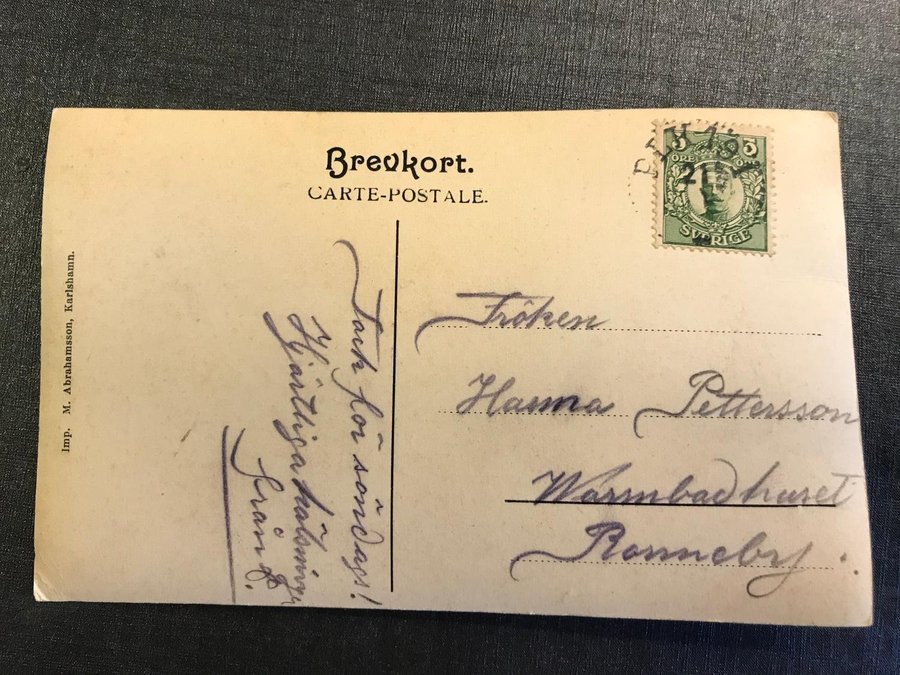 Brevkort.
CARTE-POSTALE.
5 5
ÖRE
SVERIGE
21
Imp. M. Abrahamsson, Karlshamn.
Tack för söndags!
Hjärtliga hälsningar
från
Fröken
Hanna Pettersson
Warmbadhuset
Ronneby.